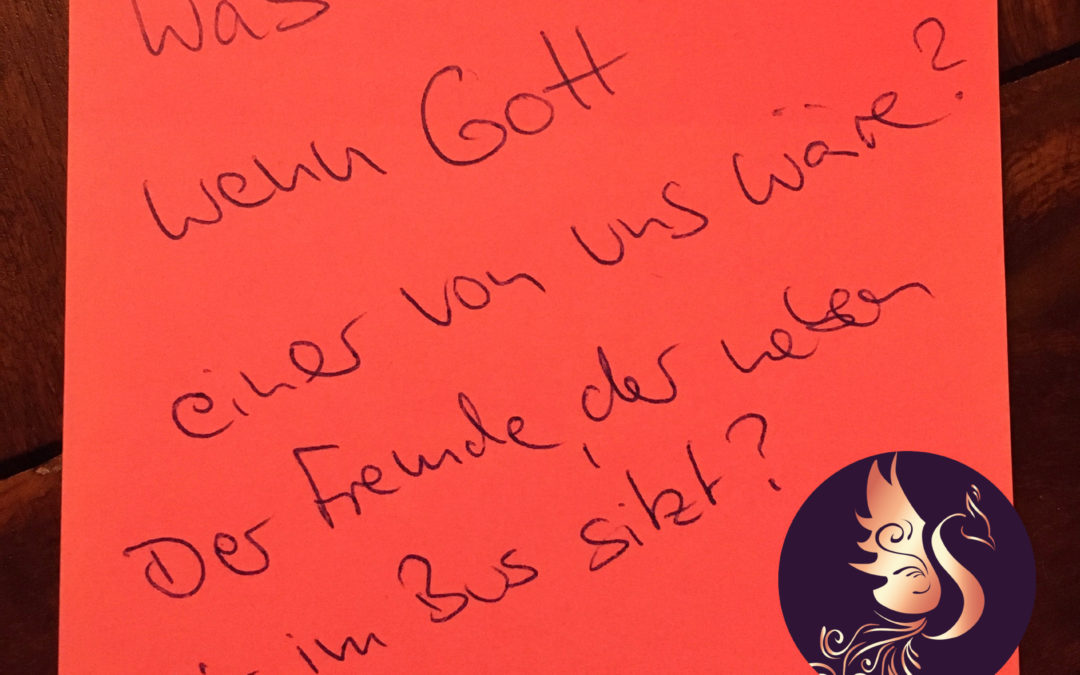 Was
wenn Gott
einer von uns wäre?
Der Fremde, der neben
im Bus sitzt?